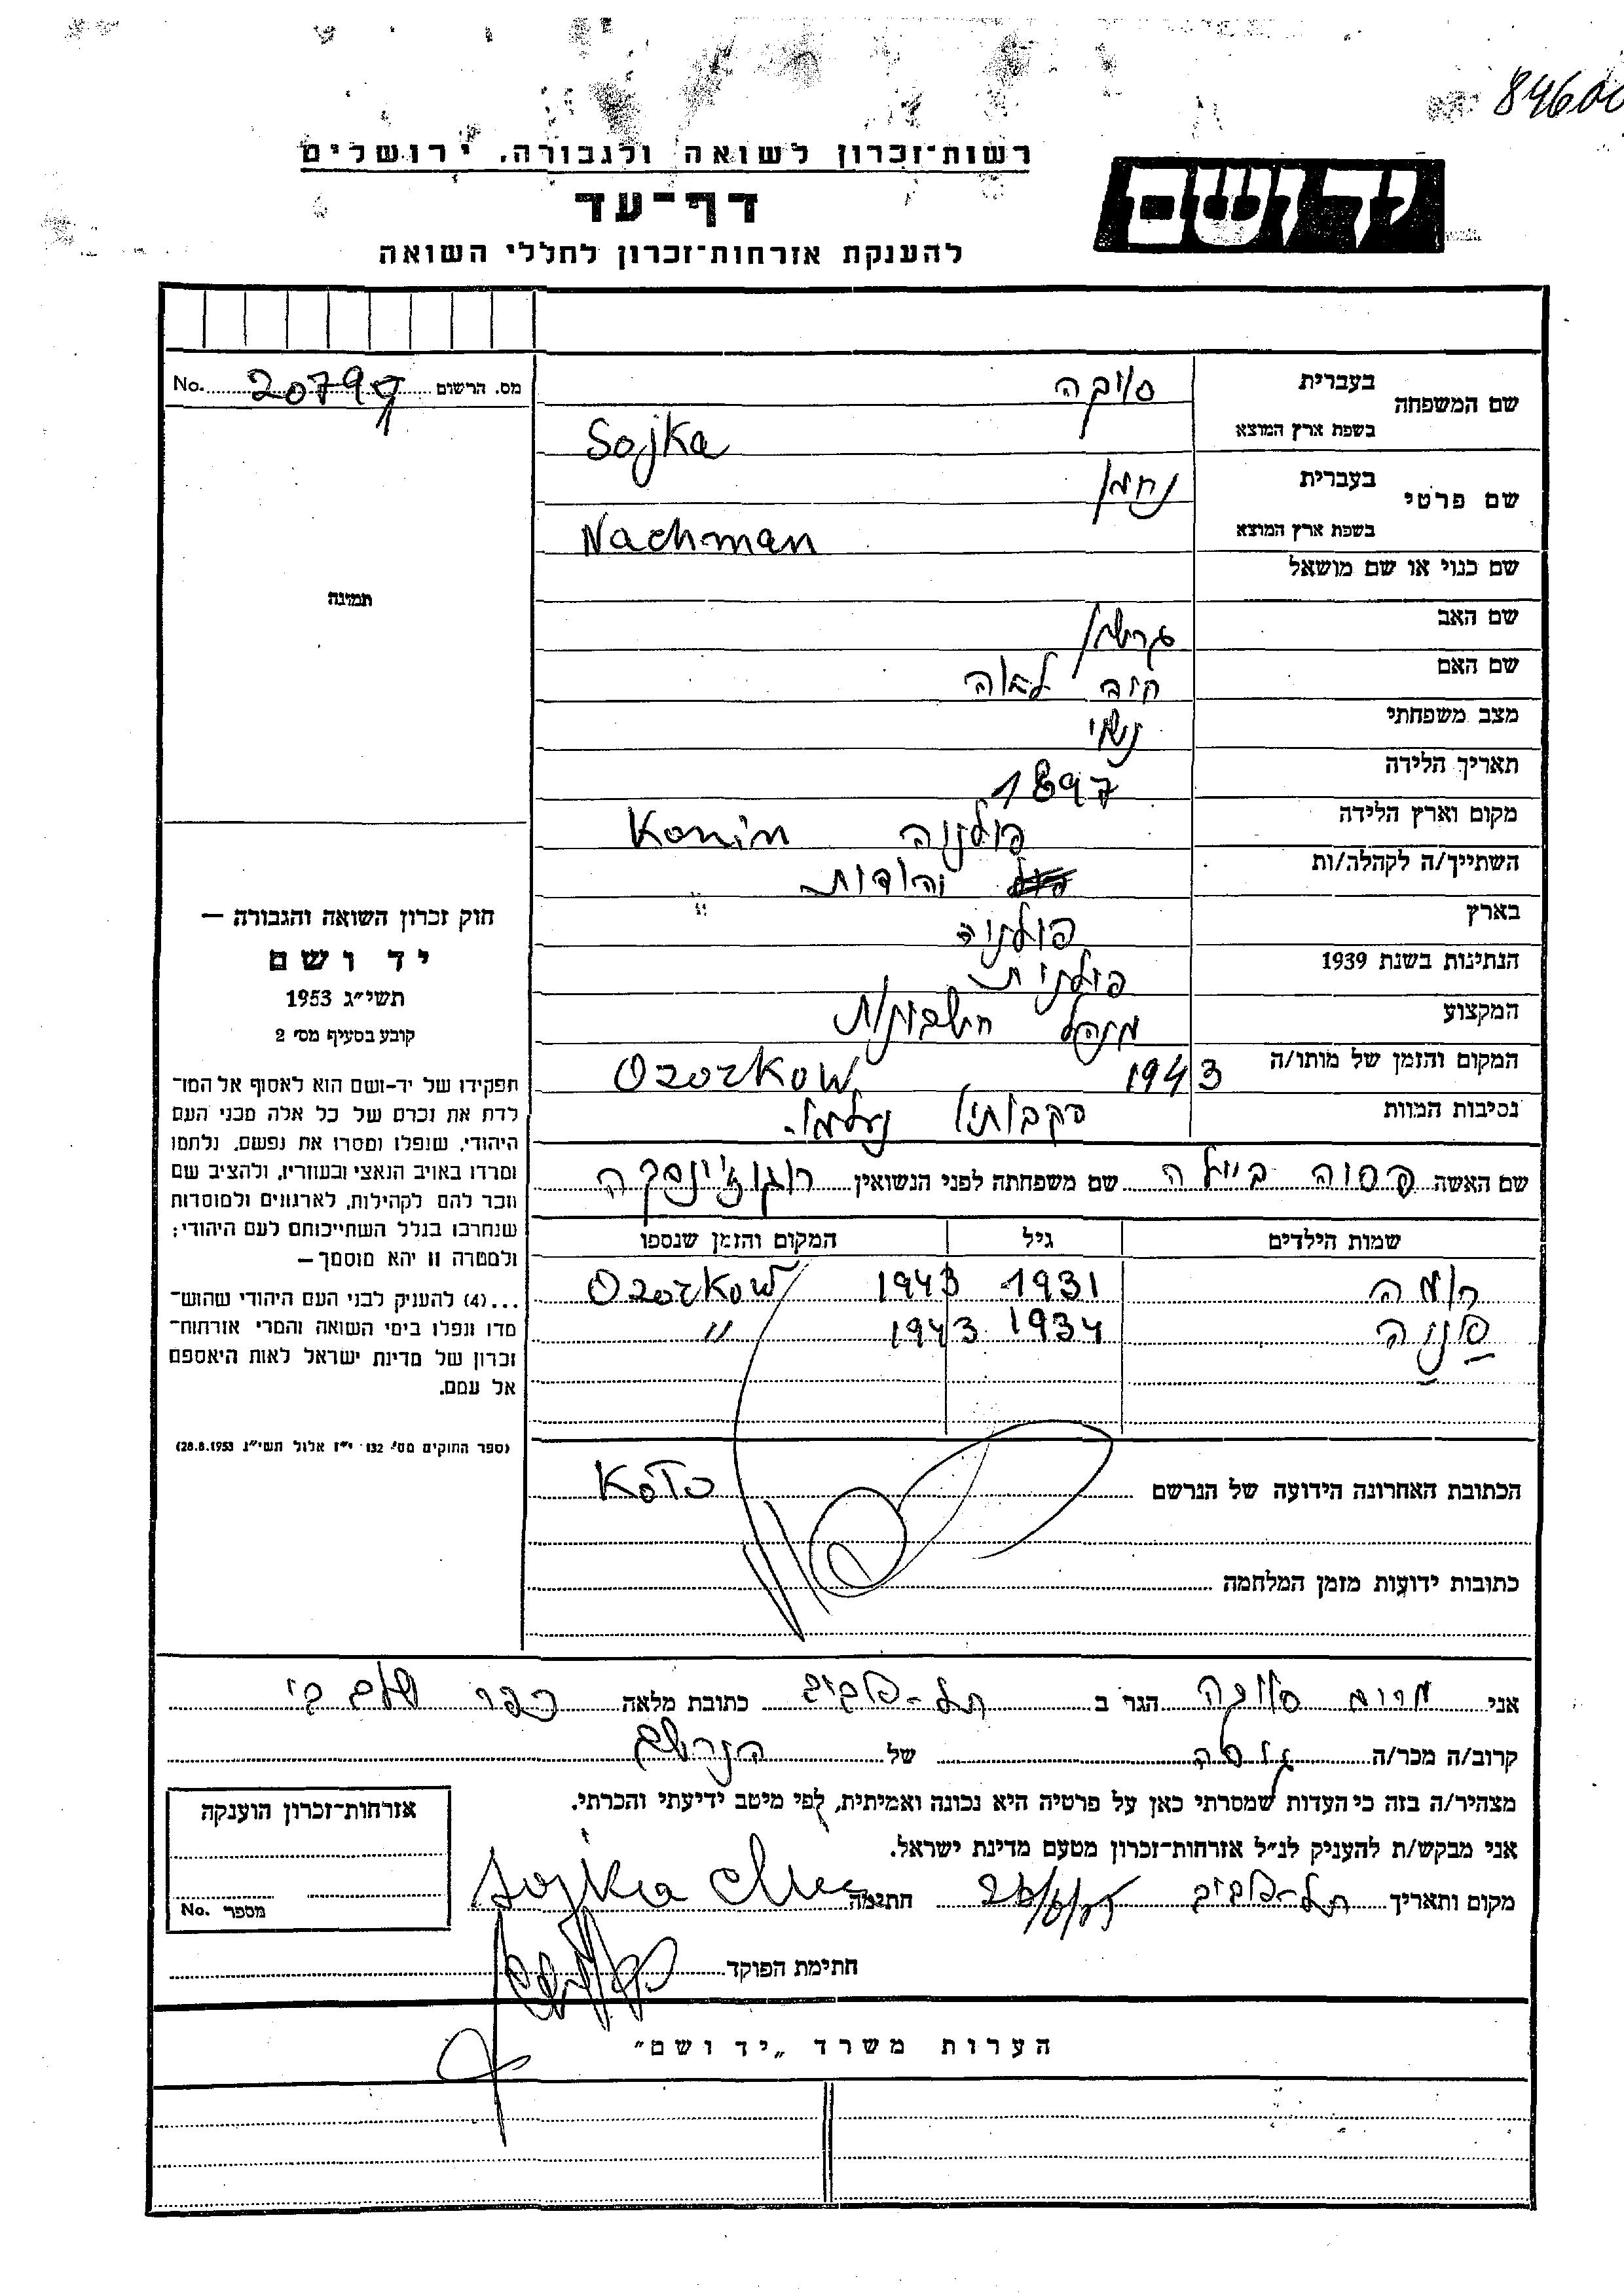 84600
רשות־זכרון לשואה ולגבורה. ירושלים
דף־עד
להענקת אזרחות־זכרון לחללי השואה
יד ושם
מס. הרשום No. 20799
שם המשפחה
בעברית סויקה
בשפת ארץ המוצא Sojka
שם פרטי
בעברית נחמן
בשפת ארץ המוצא Nachman
שם כנוי או שם מושאל
שם האב גרשון
שם האם חיה לאה
מצב משפחתי נשוי
תאריך הלידה 1897
מקום וארץ הלידה פולניה Konin
השתייך/ה לקהלה/ות יהודית
בארץ פולניה
הנתינות בשנת 1939 פולנית
המקצוע מנהל חשבונות
המקום והזמן של מותו/ה 1943 Ozorkow
נסיבות המוות נעלמו.
שם האשה ביילה שם משפחתה לפני הנשואין
שמות הילדים גיל המקום והזמן שנספו
1931 1943 Ozorkow
1934 1943 "
הכתובת האחרונה הידועה של הנרשם
כתובות ידועות מזמן המלחמה
תמונה
חוק זכרון השואה והגבורה –
יד ושם
תשי״ג 1953
קובע בסעיף מס׳ 2
תפקידו של יד-ושם הוא לאסוף אל המו־
לדת את זכרם של כל אלה מבני העם
היהודי, שנפלו ומסרו את נפשם, נלחמו
ומרדו באויב הנאצי ובעוזריו, ולהציב שם
וזכר להם לקהילות, לארגונים ולמוסדות
שנחרבו בגלל השתייכותם לעם היהודי;
ולמטרה זו יהא מוסמך–
...(4) להעניק לבני העם היהודי שהוש־
מדו ונפלו בימי השואה והמרי אזרחות־
זכרון של מדינת ישראל לאות היאספם
אל עמם.
(ספר החוקים מס׳ 132 י״ז אלול תשי״ג 28.8.1953)
אני סויקה הגר ב תל-אביב כתובת מלאה כפר שלם
קרוב/ה מכר/ה גיסה של הנרשם
מצהיר/ה בזה כי העדות שמסרתי כאן על פרטיה היא נכונה ואמיתית, לפי מיטב ידיעתי והכרתי.
אני מבקש/ת להעניק לנ״ל אזרחות־זכרון מטעם מדינת ישראל.
מקום ותאריך תל-אביב חתימה Sojka
חתימת הפוקד
אזרחות־זכרון הוענקה
מספר No.
הערות משרד „יד ושם״